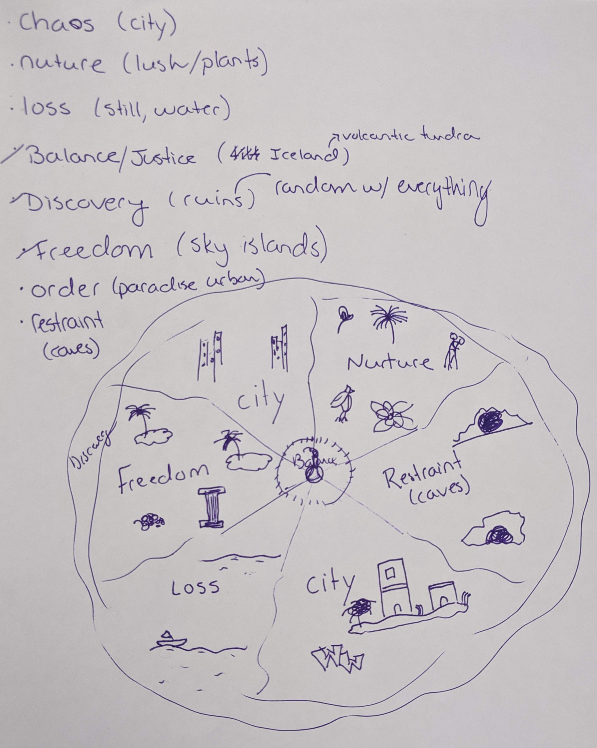 · Chaos (city)
· nuture (lush/plants)
· loss (still, water)
volcantic tundra
Balance/Justice ( Iceland)
Discovery (ruins) random w/ everything
Freedom (sky islands)
· order (paradise urban)
· restraint
(caves)
City
Nurture
Discovery
Freedom
Balance
Restraint
(caves)
Loss
City